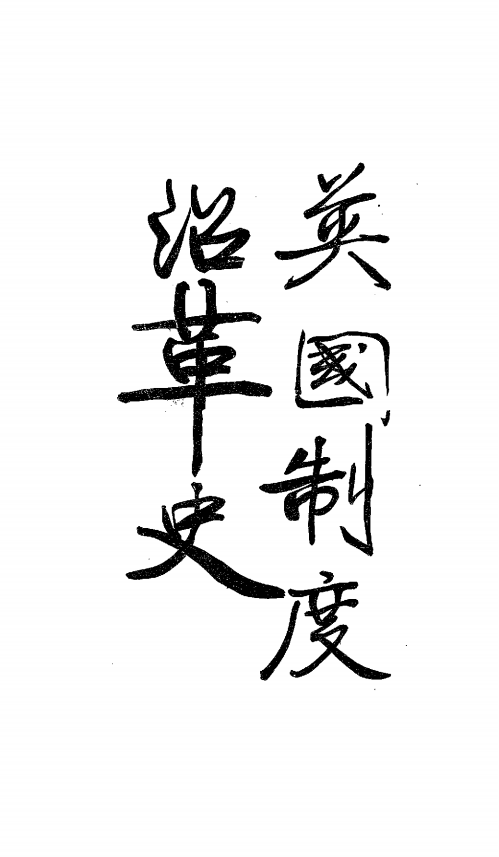 英國制度
沿革史